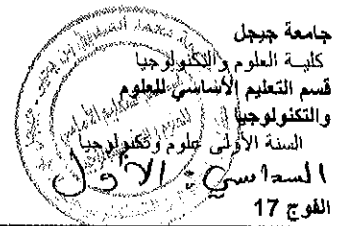 جامعة جيجل
كليـة العلوم والتكنولوجيا
قسم التعليم الأساسي للعلوم
والتكنولوجيا
السنة الأولى علوم وتكنولوجيا
السداسي : الأول
الفوج 17